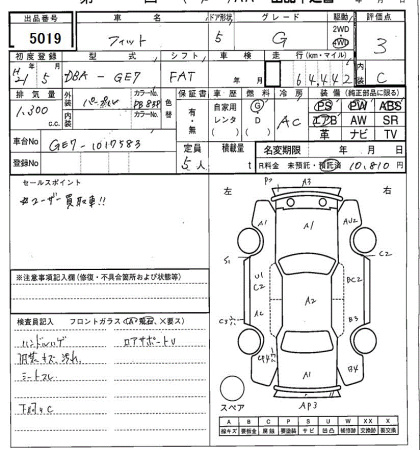 出品番号 車名 ドア形状 グレード 駆動 評価点
5019 フィット 5 G 2WD 4WD 3
初度登録 型式 シフト 車検 走行(km・マイル) 内装
H21年5月 DBA-GE7 FAT 年 月 64,442 C
排気量 外装 カラーNo. 色替 保証書 車歴 燃料 冷房 装備(純正部品に限る)
1,300 c.c. パープル PB85P 有・無 自家用 レンタ G・D AC PS PW ABS
内装 カラーNo. エアB AW SR
革 ナビ TV
車台No. GE7-1017583 定員 積載量 名変期限 年 月 日
登録No. 5人 t R料金 未預託・預託済 10,810円
セールスポイント
☆ユーザー買取車!!
左 右
A3
A1 AU2
S1 C2
U1 C2 A2 DC2
A2 B3
C3
A1 B4
AP3
スペア
※注意事項記入欄(修復・不具合箇所および状態等)
検査員記入 フロントガラス(A・飛石・×要ス)
ハンドルハゲ ロアサポートU
内装キズ、汚れ
シートスレ
下廻りC
A B C P S U W X XX
線キズ 要鈑金 腐蝕 要塗装 サビ 凹凸 補修跡 交換跡 要交換